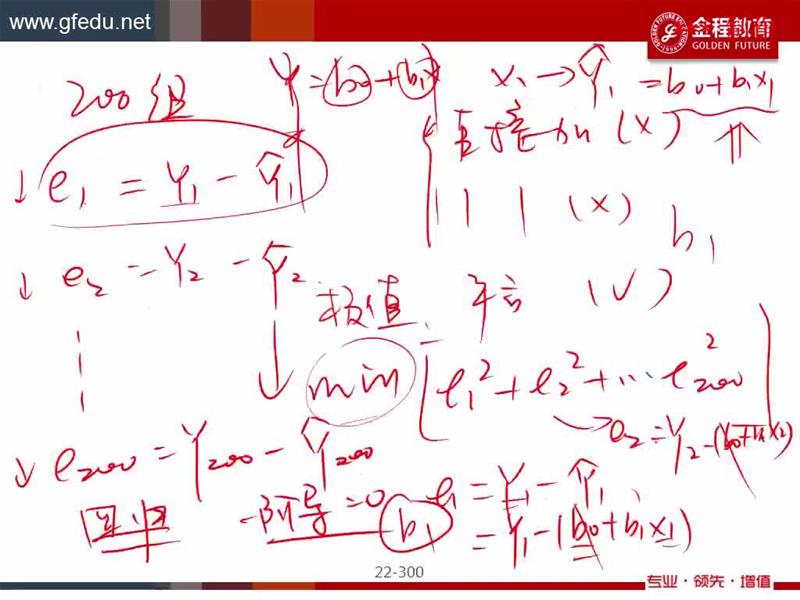 www.gfedu.net
金程教育
GOLDEN FUTURE
200组
Y = b0 + b1x
x1 → Ŷ1 = b0 + b1x1
直接加 (×)
e1 = Y1 - Ŷ1
| | | (×)
b1
e2 = Y2 - Ŷ2
极值
平方 (√)
min [e1² + e2² + ... e200²]
→ e2 = Y2 - (b0 + b1x2)
e200 = Y200 - Ŷ200
回归
一阶导 = 0
b1
e1 = Y1 - Ŷ1
= Y1 - (b0 + b1x1)
22-300
专业·领先·增值